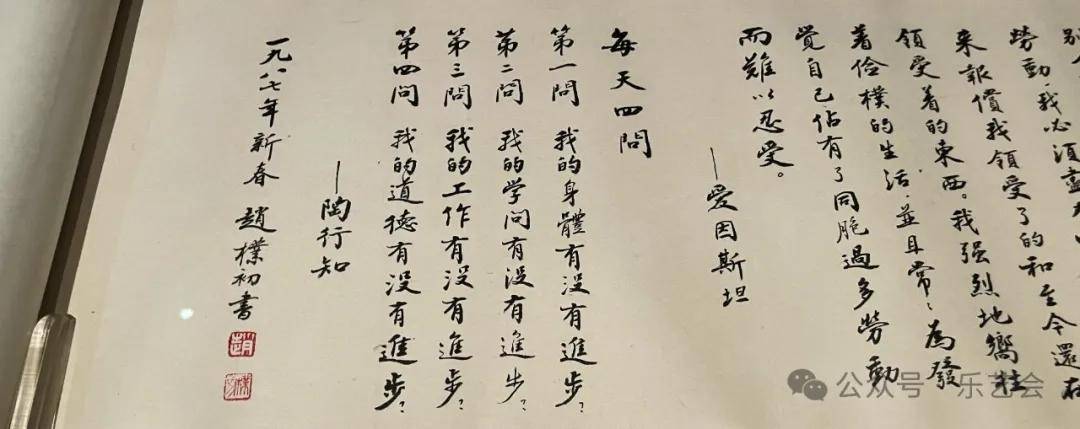 别
勞動,我必须盡
来報償我領受了的和至今還在
領受着的東西。我强烈地嚮往
着儉樸的生活,並且常〻為發
覺自己佔有了同胞過多勞動
而難以忍受。
—爱因斯坦
每天四問
第一問 我的身體有没有進步?
第二問 我的学問有没有進步?
第三問 我的工作有没有進步?
第四問 我的道德有没有進步?
—陶行知
一九八七年新春 趙樸初書
公众号·乐艺会